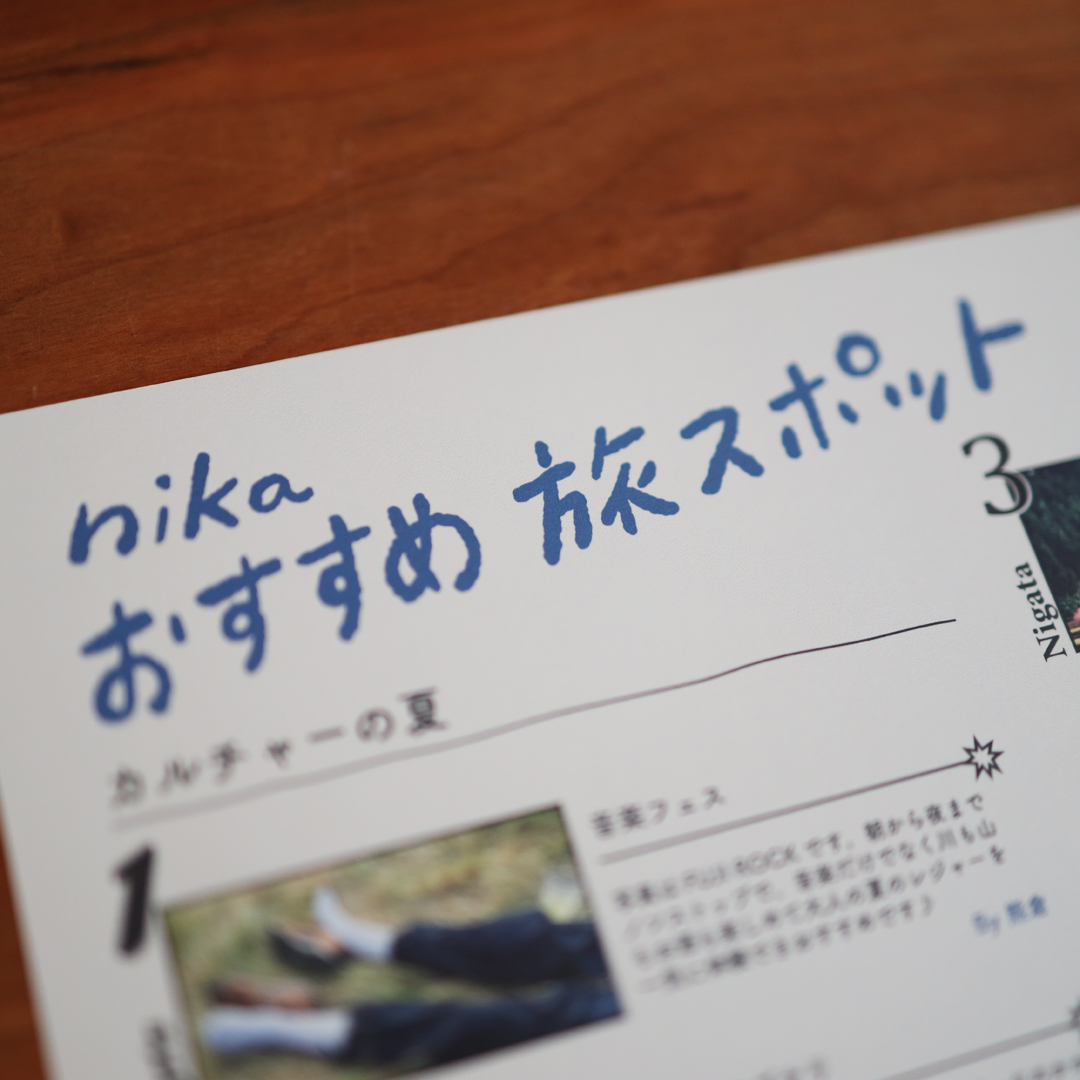 nika
おすすめ 旅スポット
カルチャーの夏
1
音楽フェス
写真はFUJI ROCKです。朝から夜まで
ノンストップで、音楽だけでなく川も山
大人の夏のレジャーを
一気に体験できるおすすめです♪
By
3
Nigata